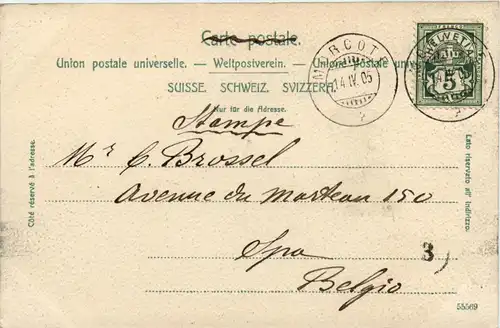 Carte postale.
Union postale universelle. — Weltpostverein. — Unione postale
SUISSE. SCHWEIZ. SVIZZERA.
Nur für die Adresse.
MORCOTE
14.IV.05
HELVETIA
5
Stampe
Mr C. Brossel
Avenue du Marteau 150
Spa
Belgio
3
Côté réservé à l'adresse.
Lato riservato all' indirizzo.
55569